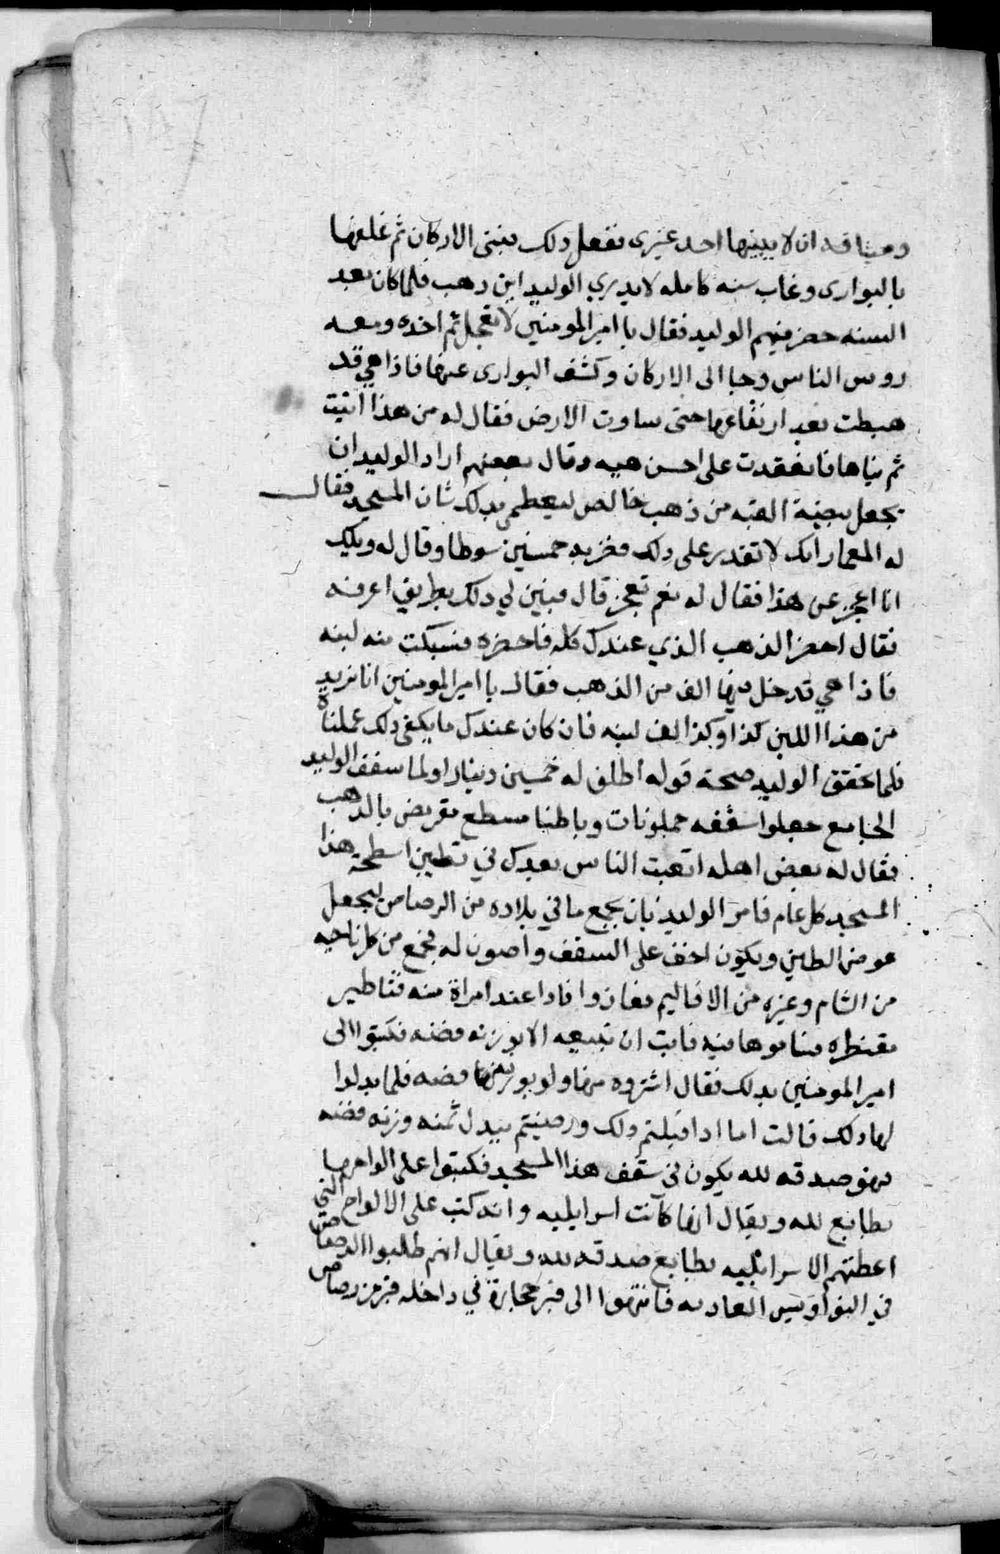 وميثاقه ان لا يبنيها احد غيري ففعل ذلك فبنى الاركان ثم غلفها
بالبواري وغاب سنه كامله لا يدري الوليد اين ذهب فلما كان بعد
السنه حضر فيهم الوليد فقال يا امير المومنين لا تعجل ثم اخذه ومعه
روس الناس وجا الى الاركان وكشف البواري عنها فاذا هي قد
هبطت بعد ارتفاعها حتى ساوت الارض فقال له من هذا اتيت
ثم بناها فانعقدت على احسن هيه وقال بعضهم اراد الوليد ان
يجعل بيضة القبه من ذهب خالص ليعظم بذلك شان المسجد فقال
له المعمار انك لا تقدر على ذلك فضربه خمسين سوطا وقال له ويلك
انا اعجز عن هذا فقال له نعم تعجز قال فبين لي ذلك بطريق اعرفه
فقال احضر الذهب الذي عندك كله فاحضره فسبكت منه لبنه
فاذا هي قد دخل فيها الف من الذهب فقال يا امير المومنين انا نريد
من هذا اللبن كذا وكذا الف لبنه فان كان عندك ما يكفي ذلك عملناه
فلما تحقق الوليد صحة قوله اطلق له خمسين دينارا ولما سقف الوليد
الجامع جعلوا سقفه جملونات وباطنا مسطح مقرنص بالذهب
فقال له بعض اهله اتعبت الناس بعدك في تطيين اسطحة هذا
المسجد كل عام فامر الوليد بان يجمع ما في بلاده من الرصاص ليجعل
عوض الطين ويكون اخف على السقف واصون له فجمع من كل ناحيه
من الشام وغيره من الاقاليم فعازوا فاذا عند امراة منه قناطير
مقنطره فساوموها فيه فابت ان تبيعه الا بوزنه فضه فكتبوا الى
امير المومنين بذلك فقال اشتروه منها ولو بوزنها فضه فلما بذلوا
لها ذلك قالت اما اذا قبلتم ذلك ورضيتم ببذل ثمنه وزنه فضه
فهو صدقه لله يكون في سقف هذا المسجد فكتبوا على الواحها
بطابع لله ويقال انها كانت اسرايليه وانه كتب على الالواح التي
اعطتهم الاسرايليه بطابع صدقه لله ويقال انهم طلبوا الرصاص
في النواويس العاديه فانتهوا الى قبر حجارة في داخله قبر من رصاص